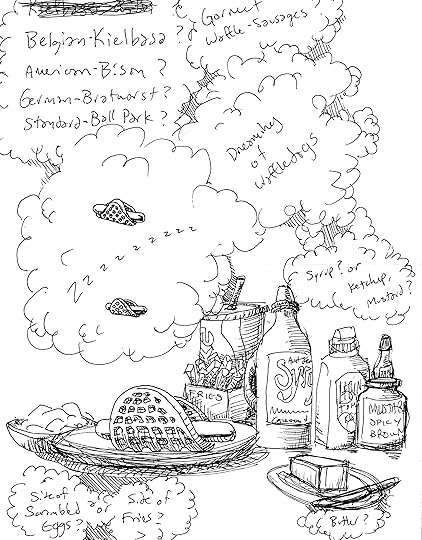 Gourmet
Waffle-Sausages?
Belgian-Kielbasa?
American-Bison?
German-Bratwurst?
Standard-Ball Park?
Dreaming
of
Waffledogs
Z Z Z Z Z Z Z Z Z Z
Syrup? or
Ketchup,
Mustard?
FRIES
Syrup
MUSTARD
SPICY
BROWN
Side of
Scrambled or
Eggs?
Side of
Fries?
Butter?